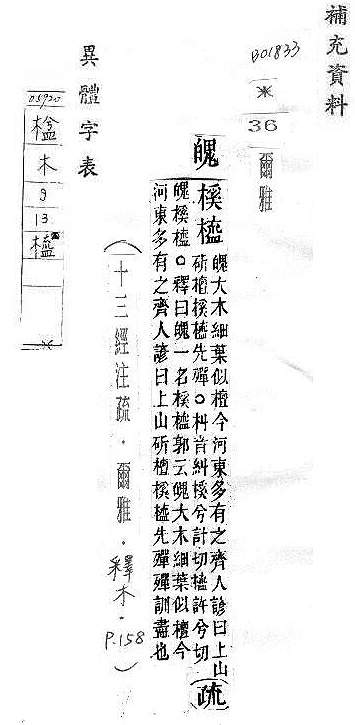 補充資料
B01833
※
36
爾雅
魄
榽橀
魄大木細葉似檀今河東多有之齊人諺曰上山
斫檀榽橀先殫○枓音糾榽兮計切橀許兮切
(疏)
魄榽橀○釋曰魄一名榽橀郭云魄大木細葉似檀今
河東多有之齊人諺曰上山斫檀榽橀先殫殫訓盡也
(十三經注疏.爾雅.釋木.P.158)
異體字表
05920
木
9
13